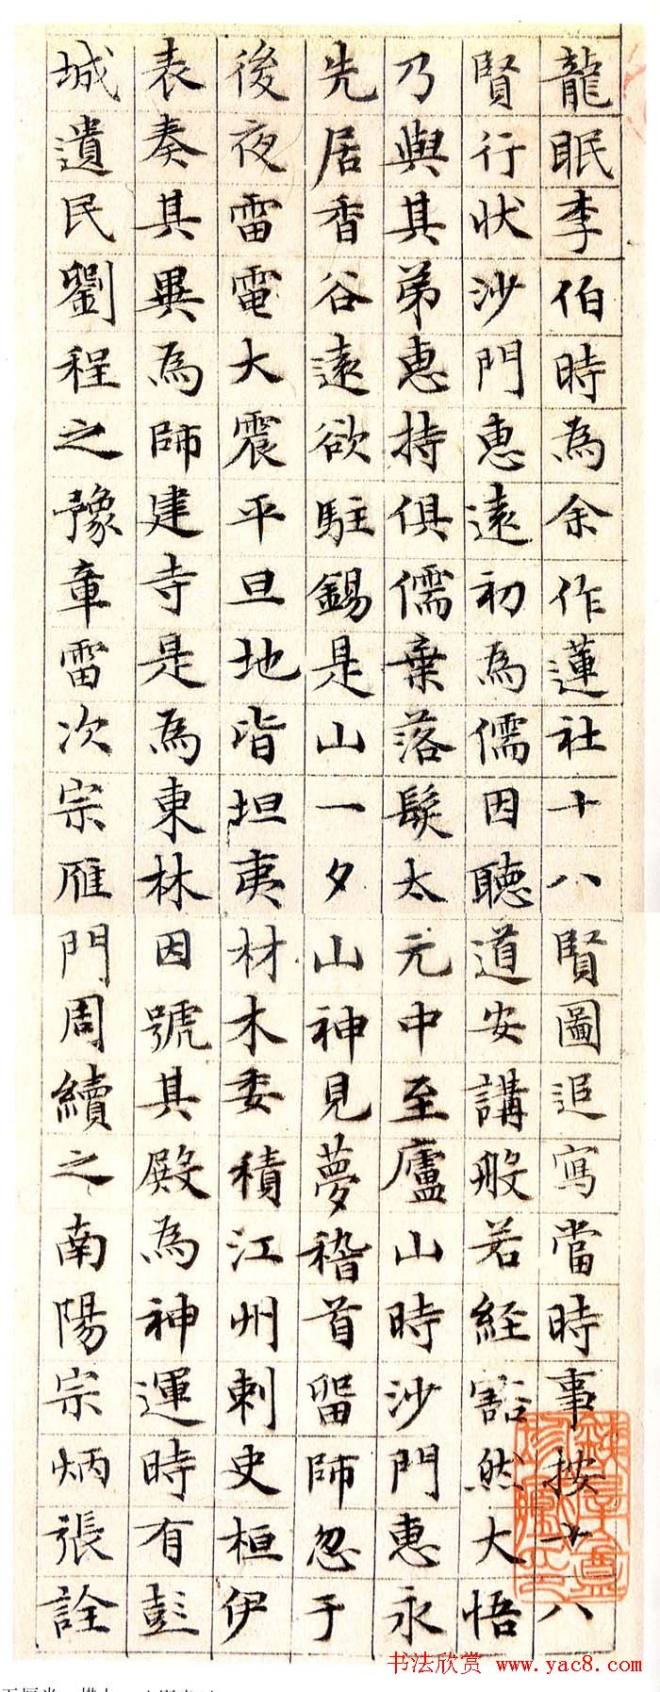 龍眠李伯時為余作蓮社十八賢圖追寫當時事按十八
賢行狀沙門惠遠初為儒因聽道安講般若經豁然大悟
乃與其弟惠持俱儒棄落髮太元中至廬山時沙門惠永
先居香谷遠欲駐錫是山一夕山神見夢稽首留師忽于
後夜雷電大震平旦地皆坦夷材木委積江州刺史桓伊
表奏其異為師建寺是為東林因號其殿為神運時有彭
城遺民劉程之豫章雷次宗雁門周續之南陽宗炳張詮
书法欣赏 www.yac8.com